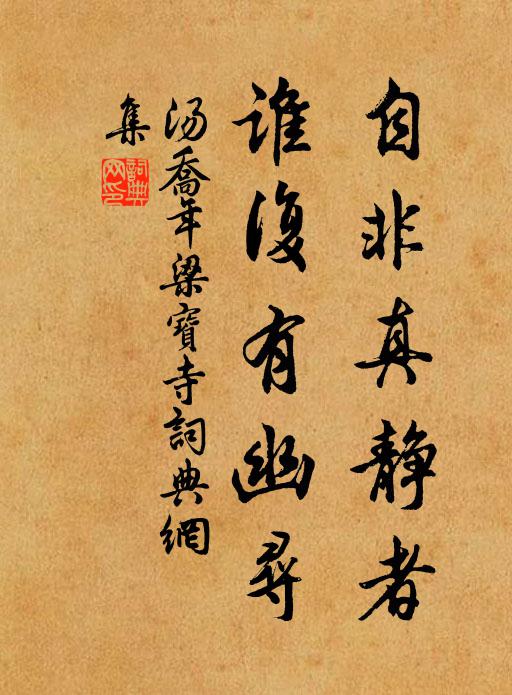 自非真静者
谁復有幽尋
汤喬年梁寶寺詞典網
集
詞典網印